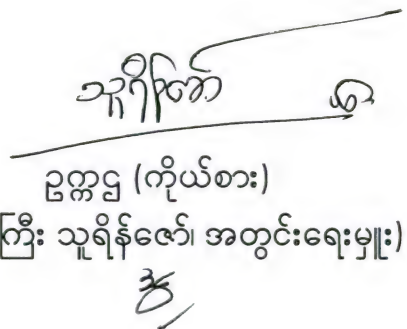 သူရိန်ဇော်
ဥက္ကဋ္ဌ (ကိုယ်စား)
ကြီး သူရိန်ဇော်၊ အတွင်းရေးမှူး)